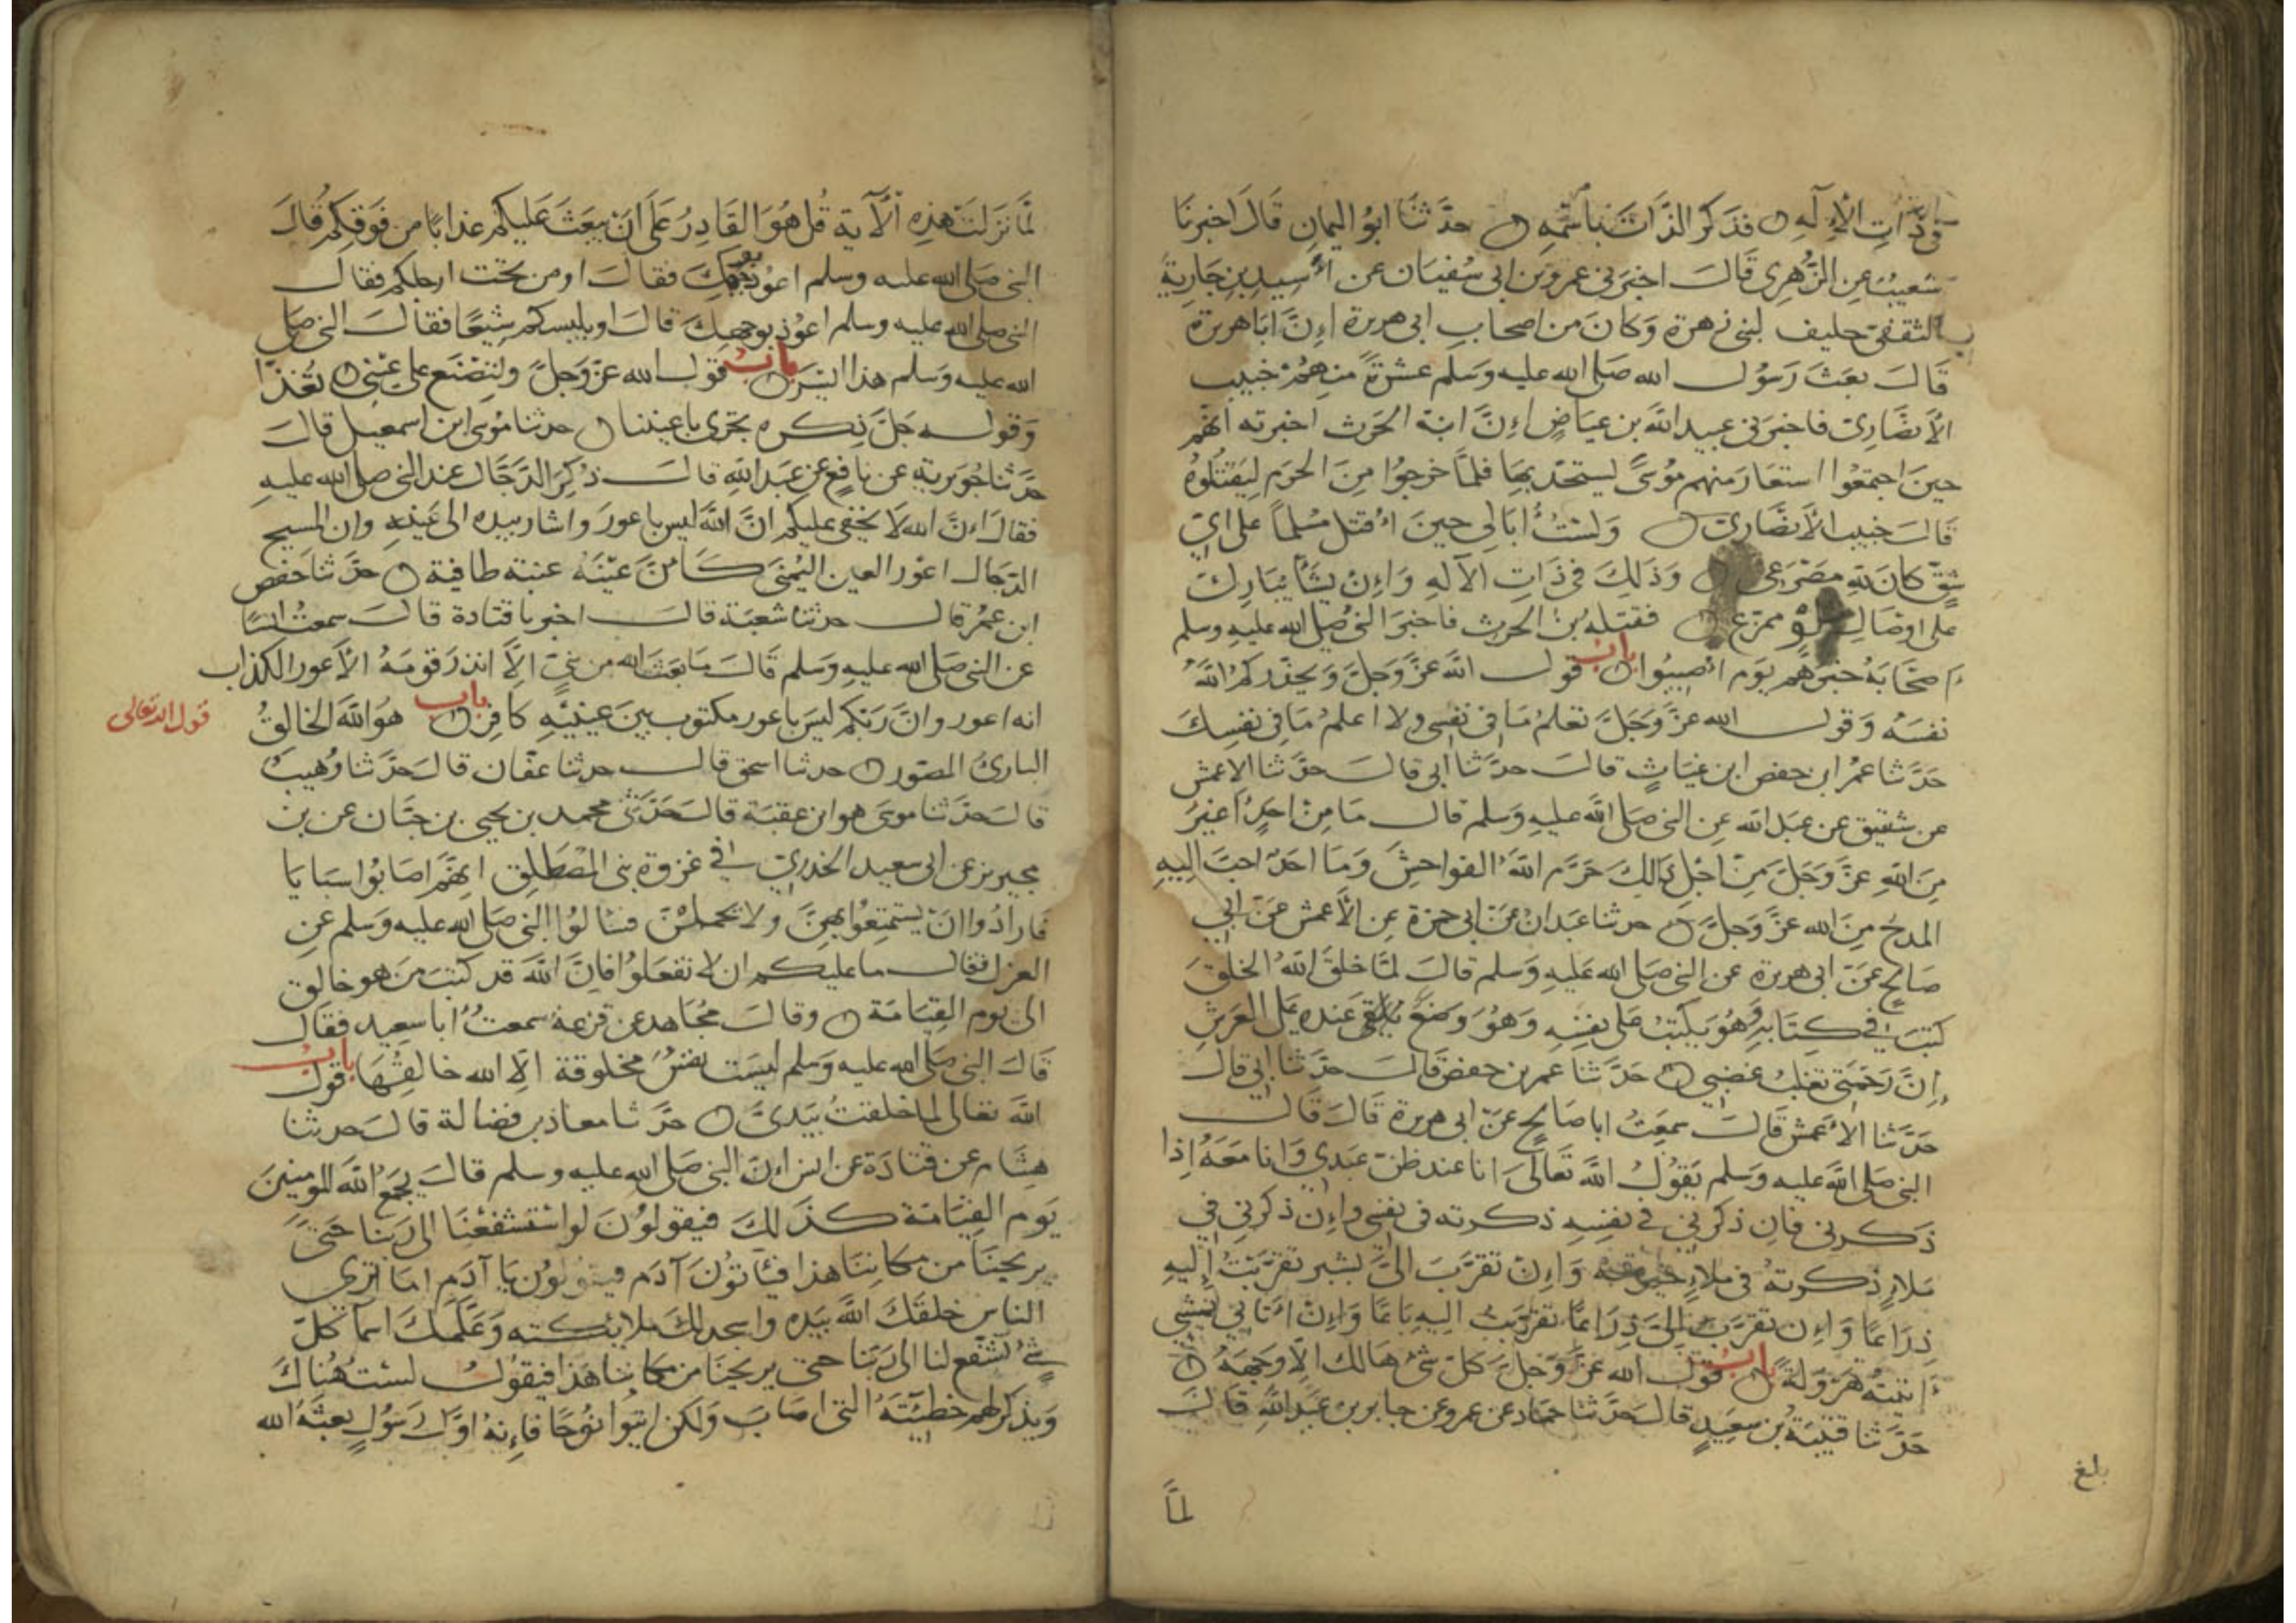 في ذات الإله فذكر الذات باسمه حدثنا ابو اليمان قال اخبرنا
شعيب عن الزهري قال اخبرني عمرو بن ابي سفيان عن أسيد بن جارية
الثقفي حليف لبني زهرة وكان من اصحاب ابي هريرة إن ابا هريرة
قال بعث رسول الله صلى الله عليه وسلم عشرة منهم خبيب
الأنصاري فاخبرني عبيد الله بن عياض إن ابنة الحرث اخبرته انهم
حين اجتمعوا استعار منهم موسى ليستحد بها فلما خرجوا من الحرم ليقتلوه
قال خبيب الأنصاري ولست أبالي حين أقتل مسلما على اي
شق كان لله مصرعي وذلك في ذات الاله وإن يشأ يبارك
على اوصال شلو ممزع فقتله بن الحرث فاخبر النبي صلى الله عليه وسلم
أصحابه خبرهم يوم أصيبوا باب قول الله عز وجل ويحذركم الله
نفسه وقول الله عز وجل تعلم ما في نفسي ولا اعلم ما في نفسك
حدثنا عمر ابن حفص ابن غياث قال حدثنا ابي قال حدثنا الاعمش
عن شقيق عن عبد الله عن النبي صلى الله عليه وسلم قال ما من احد اغير
من الله عز وجل من اجل ذالك حرم الله الفواحش وما احد احب اليه
المدح من الله عز وجل حدثنا عبدان عن ابي حمزة عن الأعمش عن ابي
صالح عن ابي هريرة عن النبي صلى الله عليه وسلم قال لما خلق الله الخلق
كتب في كتابه وهو يكتب على نفسه وهو وضع عنده على العرش
إن رحمتي تغلب غضبي حدثنا عمر بن حفص قال حدثنا ابي قال
حدثنا الأعمش قال سمعت ابا صالح عن ابي هريرة قال قال
النبي صلى الله عليه وسلم يقول الله تعالى انا عند ظن عبدي وانا معه إذا
ذكرني فان ذكرني في نفسه ذكرته في نفسي وإن ذكرني في
ملإ ذكرته في ملإ خير منه وإن تقرب الي بشبر تقربت إليه
ذراعا وإن تقرب إلي ذراعا تقربت اليه باعا وإن أتاني يمشي
أتيته هرولة باب قول الله عز وجل كل شئ هالك الا وجهه
حدثنا قتيبة بن سعيد قال حدثنا حماد عن عمرو عن جابر بن عبد الله قال
بلغ
لما
لما نزلت هذه الآية قل هو القادر على ان يبعث عليكم عذابا من فوقكم قال
النبي صلى الله عليه وسلم اعوذ بوجهك فقال او من تحت ارجلكم فقال
النبي صلى الله عليه وسلم اعوذ بوجهك قال او يلبسكم شيعا فقال النبي صلى
الله عليه وسلم هذا ايسر باب قول الله عز وجل ولتصنع على عيني تغذا
وقوله جل ذكره تجري باعيننا حدثنا موسى ابن اسمعيل قال
حدثنا جويرية عن نافع عن عبد الله قال ذكر الدجال عند النبي صلى الله عليه
فقال إن الله لا يخفى عليكم ان الله ليس باعور واشار بيده الى عينه وان المسيح
الدجال اعور العين اليمنى كأن عينه عنبة طافية حدثنا حفص
ابن عمر قال حدثنا شعبة قال اخبرنا قتادة قال سمعت انسا
عن النبي صلى الله عليه وسلم قال ما بعث الله من نبي الا انذر قومه الاعور الكذاب
انه اعور وان ربكم ليس باعور مكتوب بين عينيه كافر باب هو الله الخالق
قول الله تعالى
البارئ المصور حدثنا اسحق قال حدثنا عفان قال حدثنا وهيب
قال حدثنا موسى هو ابن عقبة قال حدثني محمد بن يحيى بن حبان عن بن
محيريز عن ابي سعيد الخدري في غزوة بني المصطلق انهم اصابوا سبايا
فارادوا ان يستمتعوا بهن ولا تحملن فسالوا النبي صلى الله عليه وسلم عن
العزل فقال ما عليكم ان لا تفعلوا فان الله قد كتب من هو خالق
الى يوم القيامة وقال مجاهد عن قزعة سمعت أبا سعيد فقال
قال النبي صلى الله عليه وسلم ليست نفس مخلوقة الا الله خالقها باب قول
الله تعالى لما خلقت بيدي حدثنا معاذ بن فضالة قال حدثنا
هشام عن قتادة عن انس إن النبي صلى الله عليه وسلم قال يجمع الله المومنين
يوم القيامة كذلك فيقولون لو استشفعنا الى ربنا حتى
يريحنا من مكاننا هذا فيأتون آدم فيقولون يا آدم اما ترى
الناس خلقك الله بيده واسجد لك ملائكته وعلمك اسما كل
شئ اشفع لنا الى ربنا حتى يريحنا من مكاننا هذا فيقول لست هناك
ويذكر لهم خطيئته التي اصاب ولكن ايتوا نوحا فإنه اول رسول بعثه الله